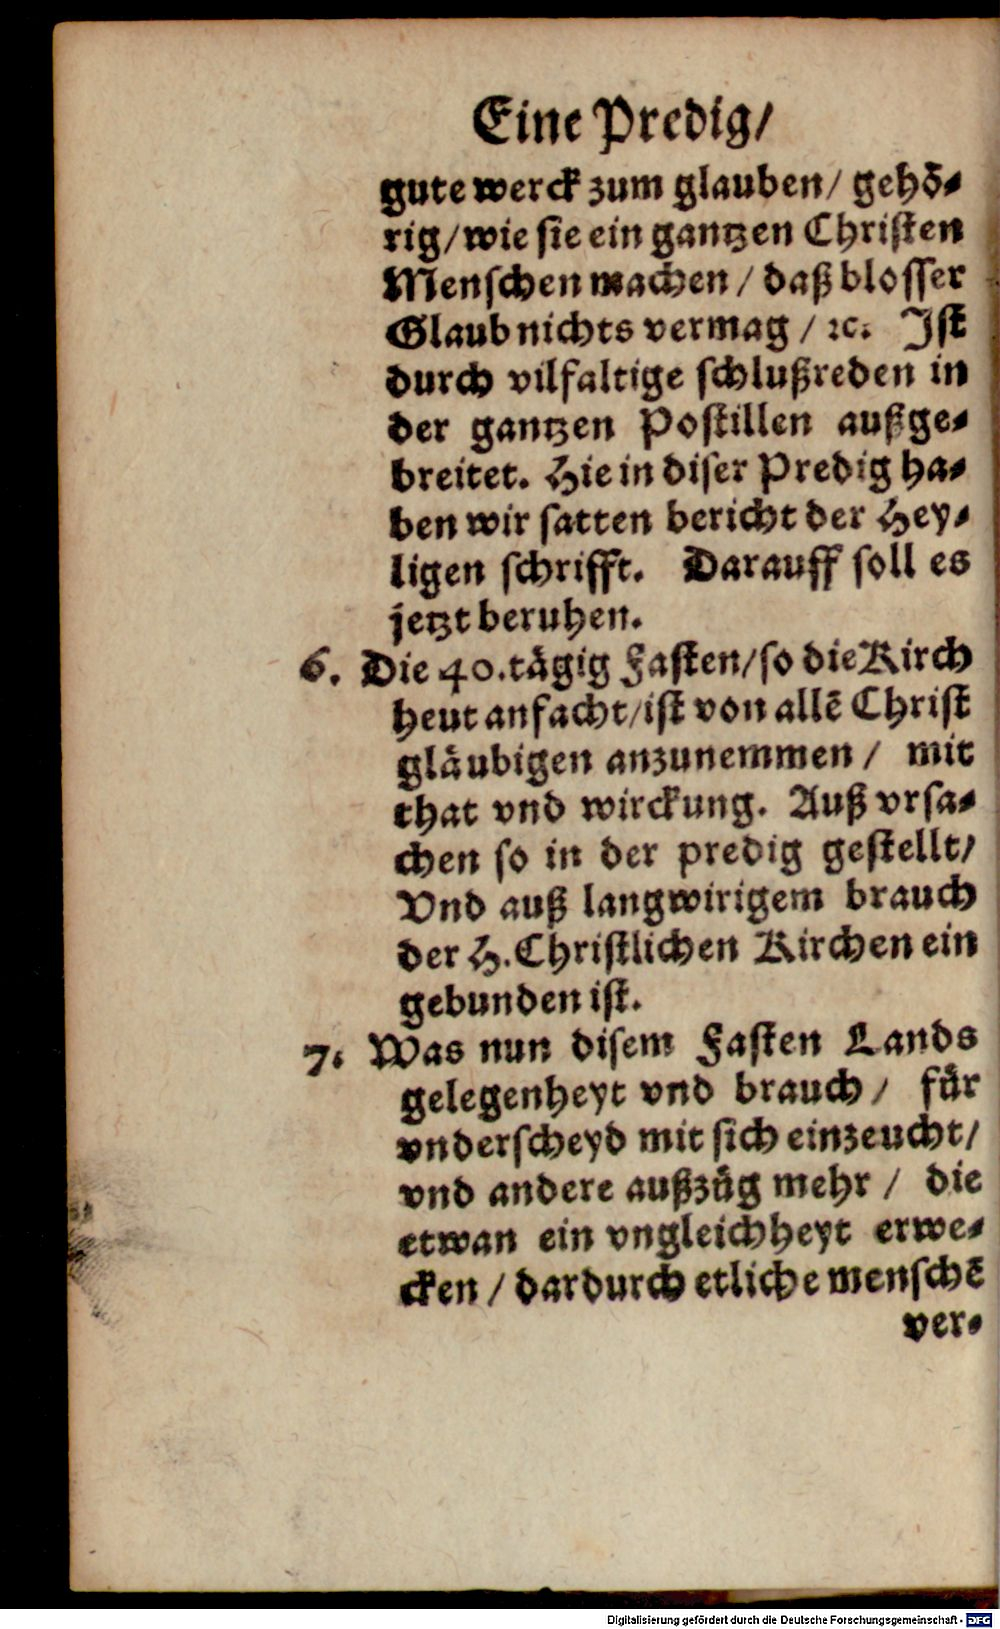 Eine Predig/
gute werck zum glauben/ gehö-
rig/wie sie ein gantzen Christen
Menschen machen / daß blosser
Glaub nichts vermag / ꝛc. Ist
durch vilfaltige schlußreden in
der gantzen Postillen außge-
breitet. Hie in diser Predig ha-
ben wir satten bericht der Hey-
ligen schrifft. Darauff soll es
jetzt beruhen.
6. Die 40.tägig Fasten/so die Kirch
heut anfacht/ist von allẽ Christ
gläubigen anzunemmen / mit
that vnd wirckung. Auß vrsa-
chen so in der predig gestellt/
Vnd auß langwirigem brauch
der H. Christlichen Kirchen ein
gebunden ist.
7. Was nun disem Fasten Lands
gelegenheyt vnd brauch / für
vnderscheyd mit sich einzeucht/
vnd andere außzüg mehr / die
etwan ein vngleichheyt erwe-
cken / dardurch etliche menschẽ
ver-
Digitalisierung gefördert durch die Deutsche Forschungsgemeinschaft - DFG